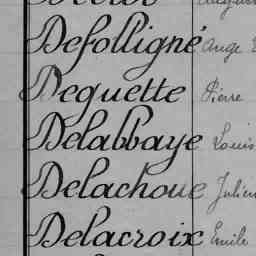 Defolligné Ange
Deguette Pierre
Delabbaye Louis
Delachoue Julien
Delacroix Emile